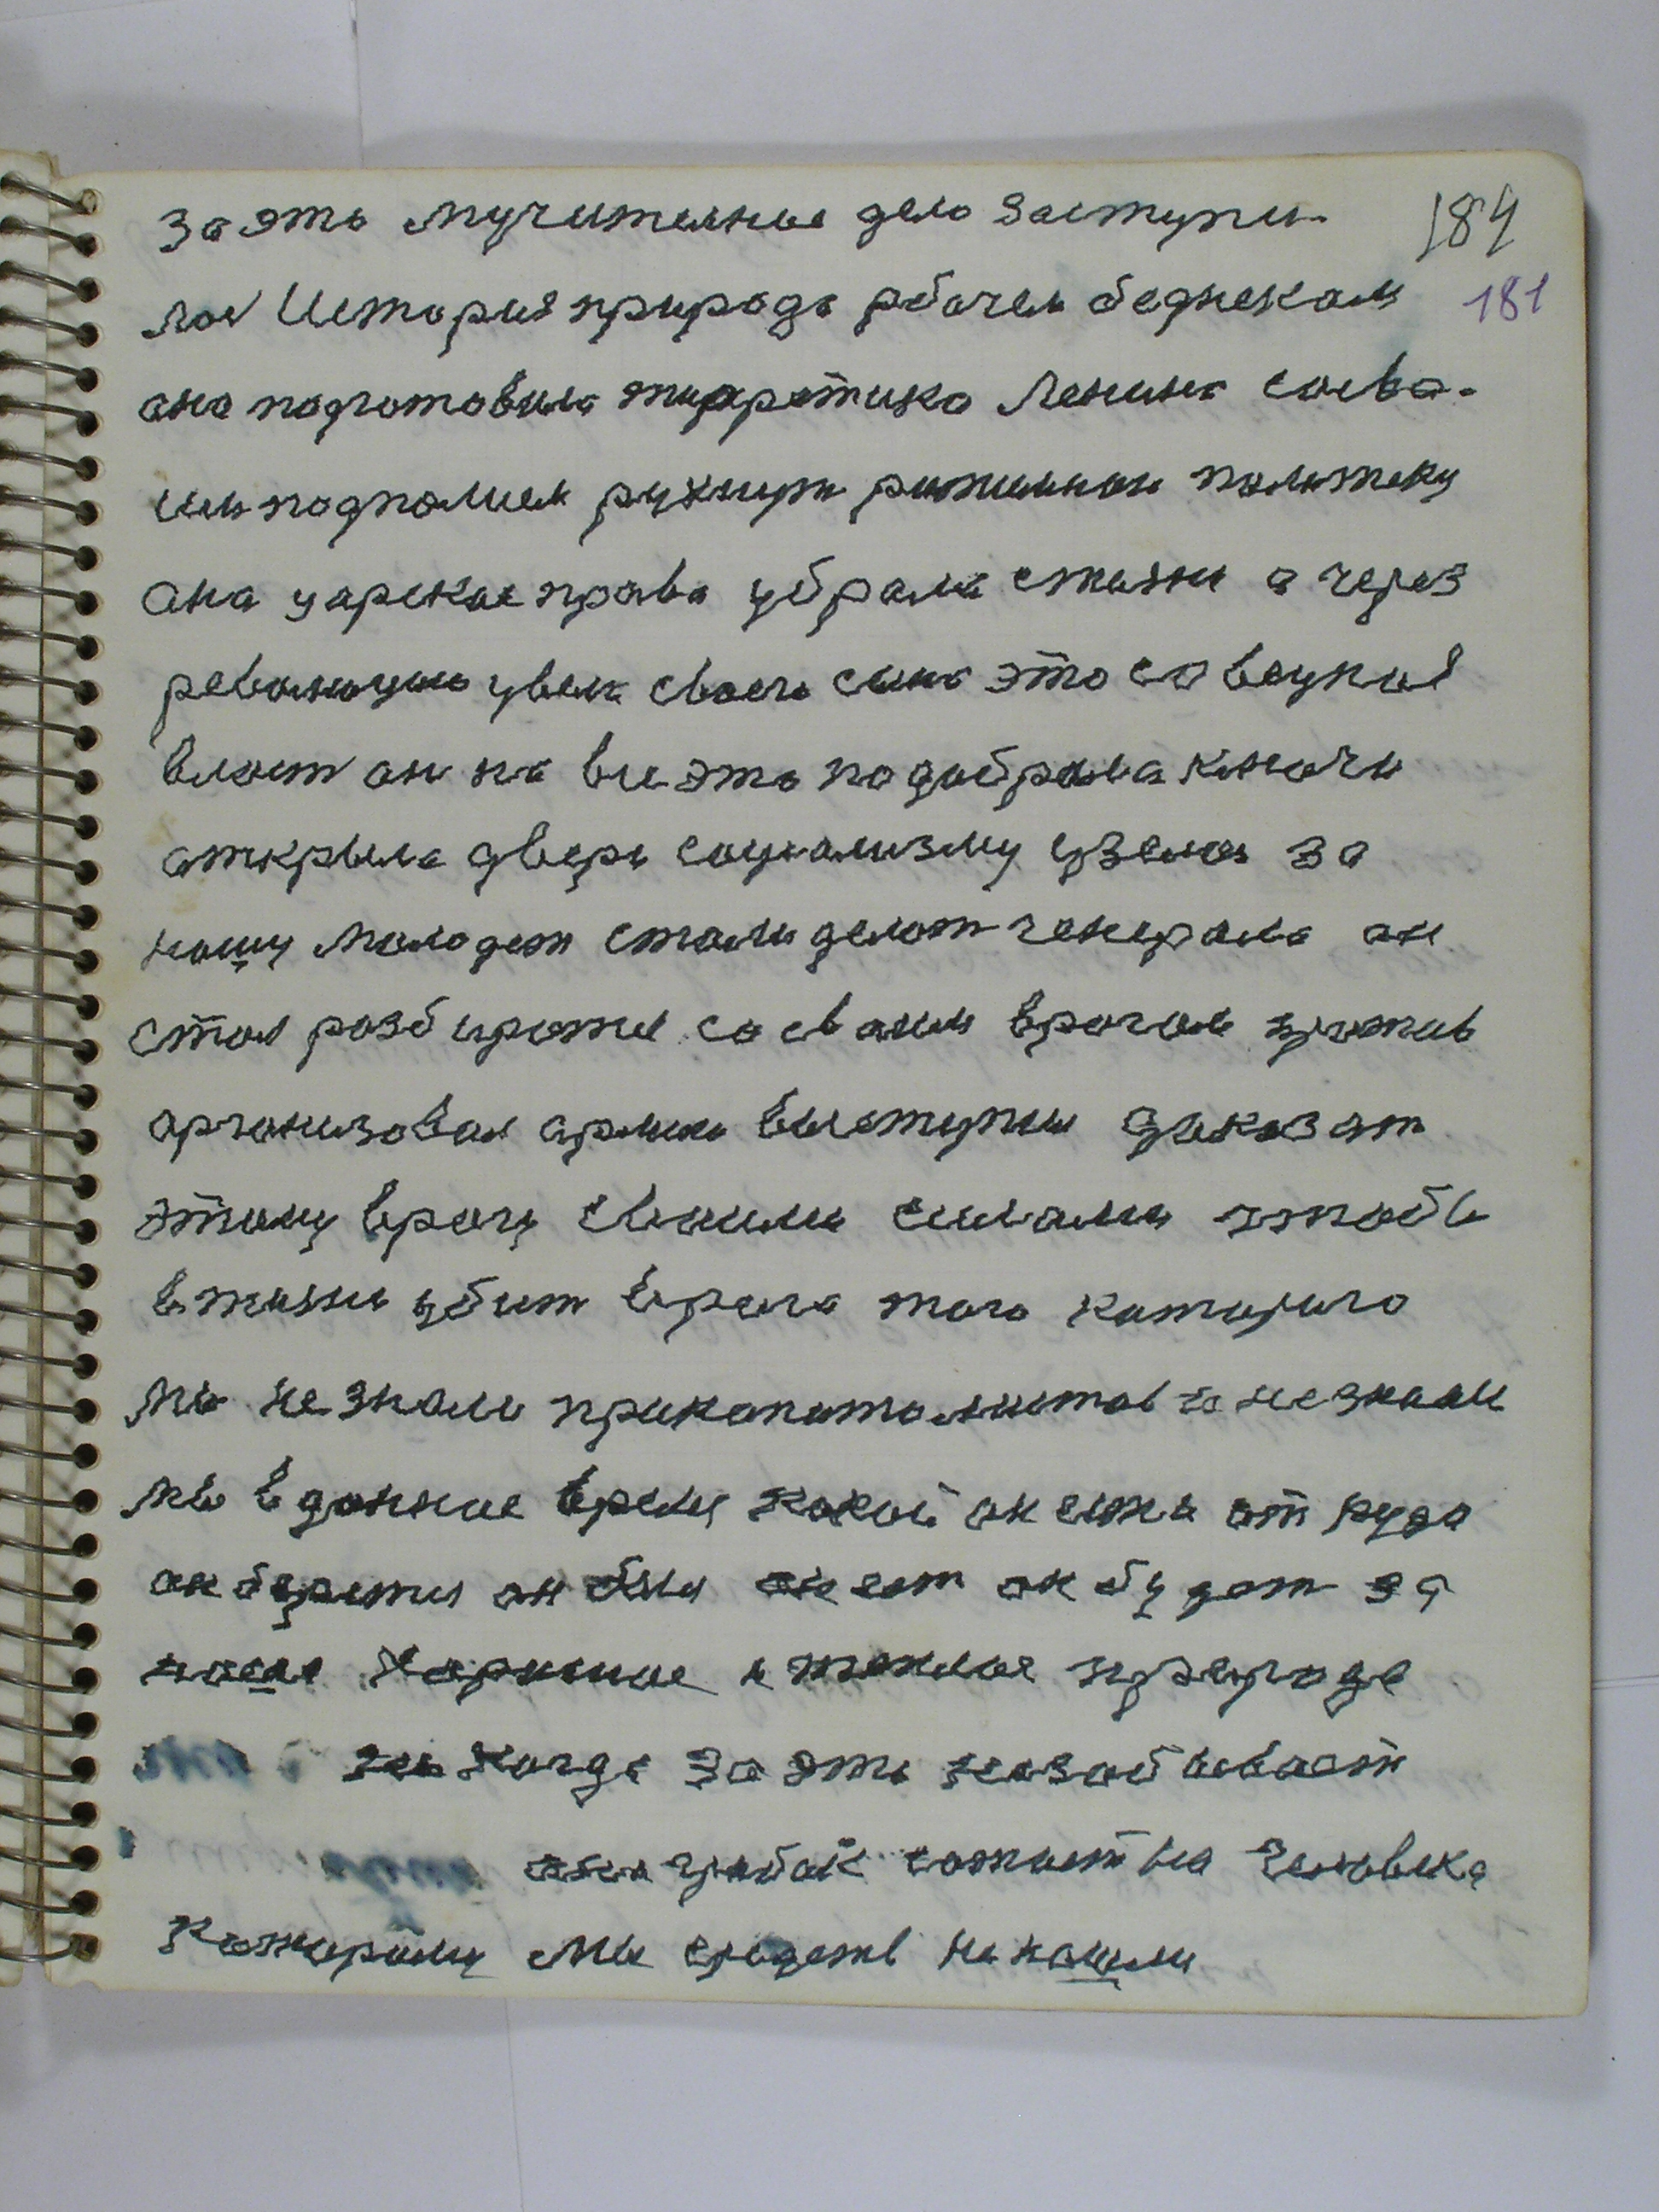 за эта мучителное дело заступи- 184
лас История природа рбочем беднекам 181
ана подготовила тиаретика Ленина сосва-
им подполием рухнути ритинной политеку
ана царское права убрала стожи а через
револиуцию увела своего сина это совецкая
власт он на все эта подобрала ключи
аткрыла двер социализму узелас за
нашу молодеж стали делат генерала он
стал розбиратся со своим врагом против
арганизовал армию выступил доказат
этому врагу своими силами чтоб
в жизни убит врага того катораго
мы не знали при капиталистов то не знаем
мы в данное время какой он ежа откуда
он берется он был он ест он будет за
наше харошие и теплое природе
она никогда за эта незабывает
она грибок сажает на человека
каторому мы средств ненашли